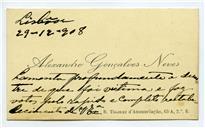 Lisboa
29-12-908
Alexandre Gonçalves Neves
Lamenta profundamente o desas-
tre de que foi victima e faz
votos pelo rapido e completo restabe-
lecimento de V. Ex.ª
R. Thomaz d'Annunciação, 63 A, 2.º E.